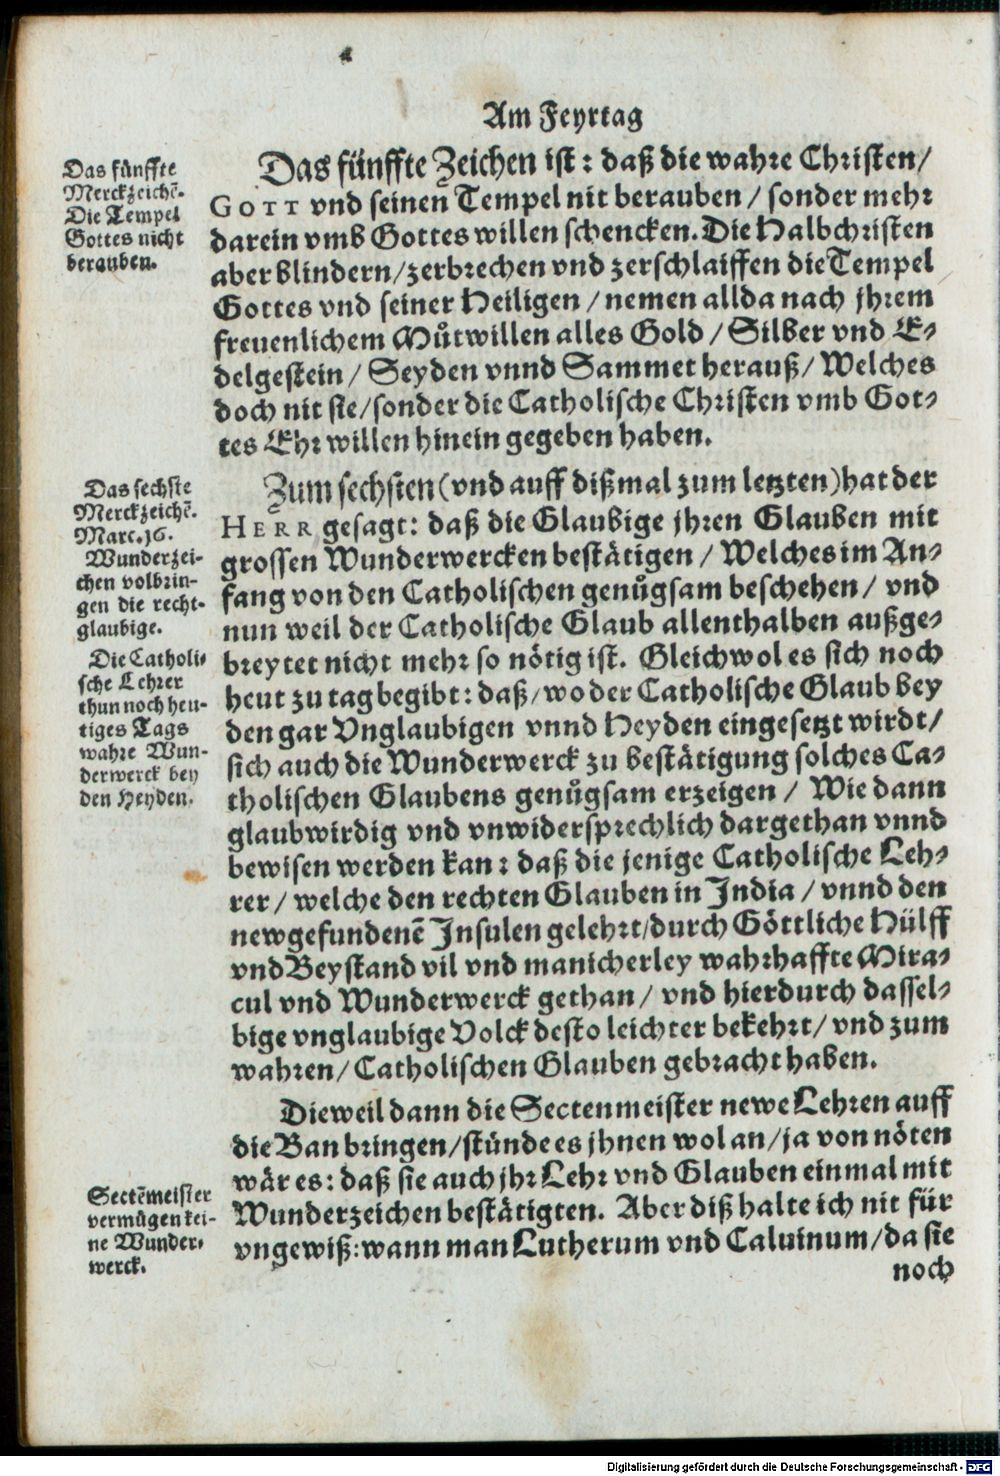 Am Feyrtag
Das fünffte
Merckzeichẽ.
Die Tempel
Gottes nicht
berauben.
Das fünffte Zeichen ist: daß die wahre Christen/
GOTT vnd seinen Tempel nit berauben / sonder mehr
darein vmb Gottes willen schencken. Die Halbchristen
aber blindern/zerbrechen vnd zerschlaiffen die Tempel
Gottes vnd seiner Heiligen / nemen allda nach jhrem
freuenlichem Můtwillen alles Gold / Silber vnd E-
delgestein / Seyden vnnd Sammet herauß/ Welches
doch nit sie/sonder die Catholische Christen vmb Got-
tes Ehr willen hinein gegeben haben.
Das sechste
Merckzeichẽ.
Marc.16.
Wunderzei-
chen volbrin-
gen die recht-
glaubige.
Die Catholi-
sche Lehrer
thun noch heu-
tiges Tags
wahre Wun-
derwerck bey
den Heyden.
Zum sechsten (vnd auff dißmal zum letzten) hat der
HERR gesagt: daß die Glaubige jhren Glauben mit
grossen Wunderwercken bestätigen / Welches im An-
fang von den Catholischen genůgsam beschehen / vnd
nun weil der Catholische Glaub allenthalben außge-
breytet nicht mehr so nötig ist. Gleichwol es sich noch
heut zu tag begibt: daß/wo der Catholische Glaub bey
den gar Vnglaubigen vnnd Heyden eingesetzt wirdt/
sich auch die Wunderwerck zu bestätigung solches Ca-
tholischen Glaubens genůgsam erzeigen / Wie dann
glaubwirdig vnd vnwidersprechlich dargethan vnnd
bewisen werden kan: daß die jenige Catholische Leh-
rer / welche den rechten Glauben in India / vnnd den
newgefundenẽ Insulen gelehrt/durch Göttliche Hülff
vnd Beystand vil vnd manicherley wahrhaffte Mira-
cul vnd Wunderwerck gethan / vnd hierdurch dassel-
bige vnglaubige Volck desto leichter bekehrt/ vnd zum
wahren/ Catholischen Glauben gebracht haben.
Dieweil dann die Sectenmeister newe Lehren auff
die Ban bringen/stünde es jhnen wol an/ja von nöten
wär es: daß sie auch jhr Lehr vnd Glauben einmal mit
Wunderzeichen bestätigten. Aber diß halte ich nit für
vngewiß:wann man Lutherum vnd Caluinum/da sie
noch
Sectẽmeister
vermügen kei-
ne Wunder-
werck.
Digitalisierung gefördert durch die Deutsche Forschungsgemeinschaft - DFG